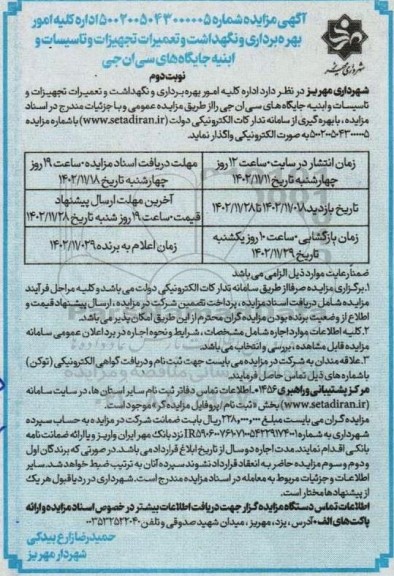 آگهی مزایده شماره ۵۰۰۲۰۰۵۰۴۳۰۰۰۰۰۵ اداره کلیه امور
بهره برداری و نگهداشت و تعمیرات تجهیزات و تاسیسات و
ابنیه جایگاه های سی ان جی
شهرداری مهریز
نوبت دوم
شهرداری مهریز در نظر دارد اداره کلیه امور بهره برداری و نگهداشت و تعمیرات تجهیزات و
تاسیسات و ابنیه جایگاه های سی ان جی را از طریق مزایده عمومی و با جزئیات مندرج در اسناد
مزایده، با بهره گیری از سامانه تدارکات الکترونیکی دولت (www.setadiran.ir) با شماره مزایده
۵۰۰۲۰۰۵۰۴۳۰۰۰۰۰۵ به صورت الکترونیکی واگذار نماید.
زمان انتشار در سایت - ساعت ۱۲ روز
چهارشنبه تاریخ ۱۴۰۲/۱۱/۱۱
مهلت دریافت اسناد مزایده - ساعت ۱۹ روز
چهارشنبه تاریخ ۱۴۰۲/۱۱/۱۸
تاریخ بازدید ۱۴۰۲/۱۱/۰۸ تا ۱۴۰۲/۱۱/۲۸
آخرین مهلت ارسال پیشنهاد
قیمت - ساعت ۱۹ روز شنبه تاریخ ۱۴۰۲/۱۱/۲۸
زمان بازگشایی - ساعت ۱۰ روز یکشنبه
تاریخ ۱۴۰۲/۱۱/۲۹
زمان اعلام به برنده ۱۴۰۲/۱۱/۰۲۹
ضمناً رعایت موارد ذیل الزامی می باشد
۱. برگزاری مزایده صرفا از طریق سامانه تدارکات الکترونیکی دولت می باشد و کلیه مراحل فرآیند
مزایده شامل دریافت اسناد مزایده، پرداخت تضمین شرکت در مزایده، ارسال پیشنهاد قیمت و
اطلاع از وضعیت برنده بودن مزایده گران محترم از این طریق امکان پذیر می باشد.
۲. کلیه اطلاعات موارد اجاره شامل مشخصات، شرایط و نحوه اجاره در برد اعلان عمومی سامانه
مزایده قابل مشاهده، بررسی و انتخاب می باشد.
۳. علاقه مندان به شرکت در مزایده می بایست جهت ثبت نام و دریافت گواهی الکترونیکی (توکن)
با شماره های ذیل تماس حاصل فرمایند.
مرکز پشتیبانی و راهبری ۱۴۵۶. اطلاعات تماس دفاتر ثبت نام سایر استان ها، در سایت سامانه
(www.setadiran.ir) بخش «ثبت نام/پروفایل مزایده گر» موجود است.
مزایده گران می بایست مبلغ ۲۲۸۰٬۰۰۰٬۰۰۰ ریال بابت ضمانت شرکت در مزایده به حساب سپرده
شهرداری به شماره IR۵۹۰۶۰۰۷۶۱۰۷۱۰۰۵۴۲۲۹۱۷۴۰۰۱ نزد بانک مهر ایران واریز و یا ارائه ضمانت نامه
بانکی اقدام نمایند. مدت اجاره دو سال از تاریخ ابلاغ قرارداد می باشد. در صورتی که برندگان اول
و دوم و سوم مزایده حاضر به انعقاد قرارداد نشوند سپرده آنان به ترتیب ضبط خواهد شد. سایر
اطلاعات و جزئیات مربوط به معامله در اسناد مزایده مندرج است. شهرداری در رد یا قبول هر یک
از پیشنهادها مختار است.
اطلاعات تماس دستگاه مزایده گزار جهت دریافت اطلاعات بیشتر در خصوص اسناد مزایده و ارائه
پاکت های الف ۰ آدرس، یزد، مهریز، میدان شهید صدوقی و تلفن ۰۰۳۵۳۲۵۲۲۰۴۰
حمیدرضا زارع بیدکی
شهردار مهریز